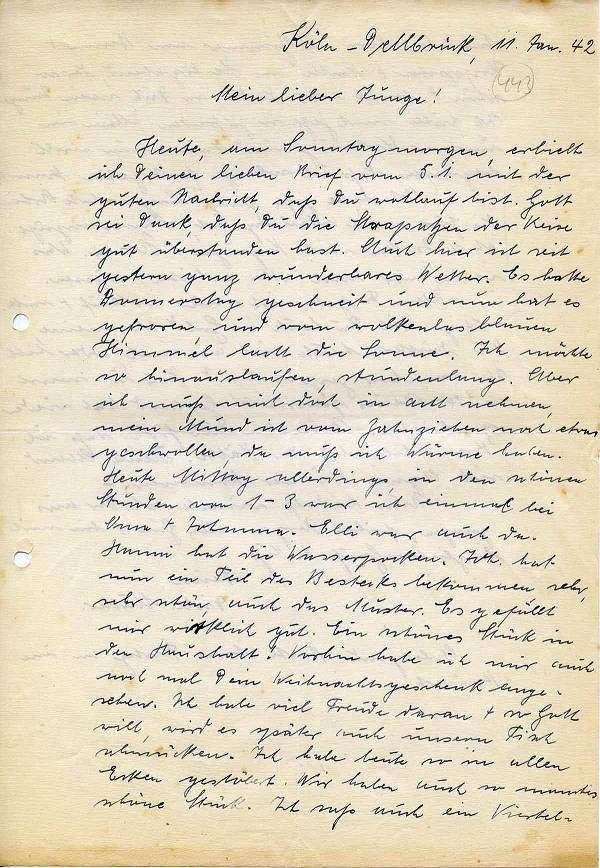 Köln-Dellbrück, 11. Jan. 42
443
Mein lieber Junge!
Heute, am Sonntagmorgen, erhielt
ich Deinen lieben Brief vom 5.1. mit der
guten Nachricht, daß Du wohlauf bist. Gott
sei Dank, daß Du die Strapatzen der Reise
gut überstanden hast. Auch hier ist seit
gestern ganz wunderbares Wetter. Es hatte
Donnerstag geschneit und nun hat es
gefroren, und vom wolkenlos blauen
Himmel lacht die Sonne. Ich möchte
so hinauslaufen, stundenlang. Aber
ich muß mich doch in acht nehmen,
mein Mund ist vom Zahnziehen noch etwas
geschwollen, da muß ich Wärme haben.
Heute Mittag allerdings in den schönen
Stunden von 1-3 war ich einmal bei
Oma + Johanna. Elli war auch da.
Hanni hat die Wasserpocken. Joh. hat
nun ein Teil des Bestecks bekommen, sehr,
sehr schön, auch das Muster. Es gefällt
mir wirklich gut. Ein schönes Stück in
den Haushalt! Vorhin habe ich mir auch
noch mal Dein Weihnachtsgeschenk ange-
sehen. Ich habe viel Freude daran + so Gott
will, wird es später auch unsern Tisch
schmücken. Ich habe heute so in allen
Ecken gestöbert. Wir haben auch so manches
schöne Stück. Ich saß auch ein Viertel-